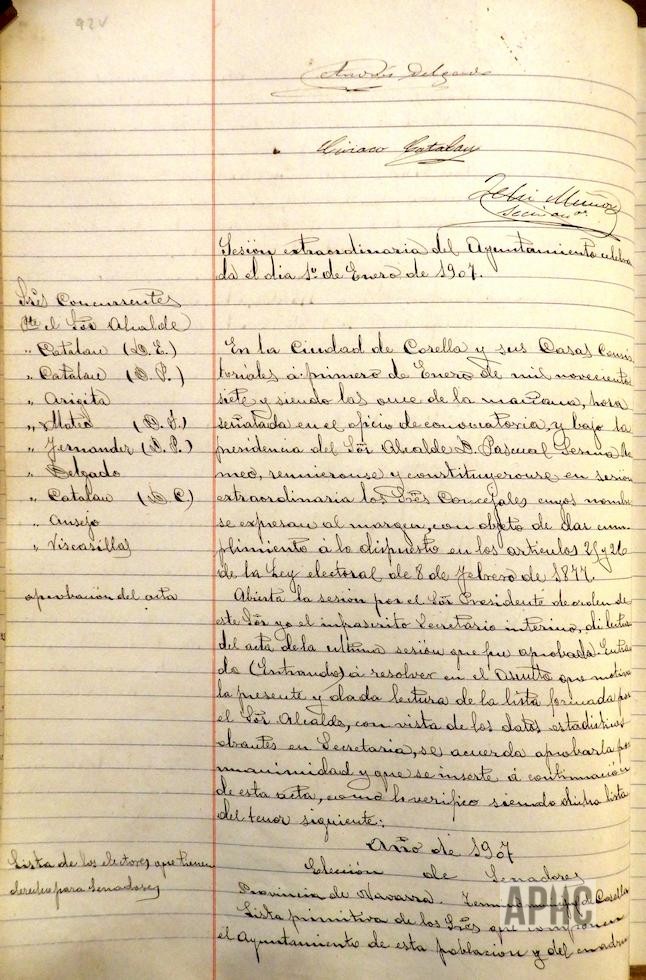 92V
Andrés Delgado
Ciriaco Catalan
Felix Muñoz
Secretario
Sesión extraordinaria del Ayuntamiento celebra
da el dia 1º de Enero de 1907.
Sres Concurrentes
Pte el Sor Alcalde
" Catalan (D. E.)
" Catalan (D. P.)
" Arigita
" Mateo (D. F.)
" Fernandez (D. P.)
" Delgado
" Catalan (D. C)
" Ausejo
" Viscasillas
aprobación del acta
Lista de los electores que tienen
derecho para Senadores
En la Ciudad de Corella y sus Casas Consis
toriales á primero de Enero de mil novecientos
siete y siendo las once de la mañana, hora
señalada en el oficio de convocatoria, y bajo la
presidencia del Sor Alcalde D. Pascual
reunieronse y constituyeronse en sesión
extraordinaria los Sres Concejales cuyos nombres
se expresan al margen, con objeto de dar cum
plimiento á lo dispuesto en los articulos 25 y 26
de la Ley electoral de 8 de Febrero de 1877.
Abierta la sesión por el Sor Presidente de orden de
este Sor yo el infrascrito Secretario interino, di lectura
del acta de la ultima sesión que fue aprobada. Entra
do (Entrando) á resolver en el asunto que motiva
la presente y dada lectura de la lista formada por
el Sor Alcalde, con vista de los datos estadisticos
obrantes en Secretaria, se acuerda aprobarla por
unanimidad y que se inserte á continuación
de esta acta, como lo verifico siendo dicha lista
del tenor siguiente:
Año de 1907
Elección de Senadores
Provincia de Navarra. de Corella
Lista primitiva de los Sres que componen
el Ayuntamiento de esta población y del
APHC